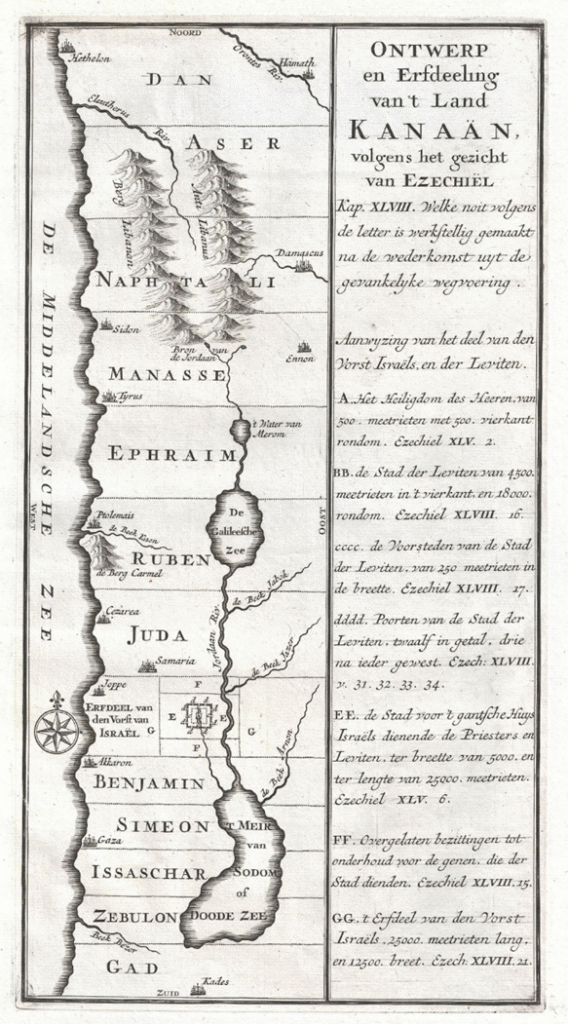 NOORD
Hethelon
Orontes Riv.
Hamath
DAN
Eleutherus Riv.
ASER
Berg Libanon
Anti Libanus
Damascus
NAPHTALI
Sidon
Bron van
de Jordaan
Ennon
MANASSE
Tyrus
't Water van
Merom
EPHRAIM
DE MIDDELANDSCHE ZEE
WEST
OOST
De
Galileesche
Zee
Ptolemais
de Beek Kison
RUBEN
de Berg Carmel
de Beek Jabok
Cezarea
JUDA
Jordaan Riv.
de Beek Jazer
Samaria
Joppe
F
ERFDEEL van
den Vorst van
ISRAËL
G
E
A
E
G
F
Akkaron
BENJAMIN
de Beek Arnon
SIMEON
't MEIR
van
SODOM
of
DOODE ZEE
Gaza
ISSASCHAR
ZEBULON
Beek Bezor
GAD
Kades
ZUID
ONTWERP
en Erfdeeling
van 't Land
KANAÄN,
volgens het gezicht
van EZECHIËL
Kap. XLVIII. Welke noit volgens
de letter is werkstellig gemaakt
na de wederkomst uyt de
gevankelyke wegvoering.
Aanwyzing van het deel van den
Vorst Israëls, en der Leviten.
A. Het Heiligdom des Heeren, van
500. meetrieten met 500. vierkant
rondom. Ezechiel XLV. 2.
BB. de Stad der Leviten van 4500.
meetrieten in 't vierkant. en 18000.
rondom. Ezechiel XLVIII. 16.
cccc. de Voorsteden van de Stad
der Leviten, van 250 meetrieten in
de breette. Ezechiel XLVIII. 17.
dddd. Poorten van de Stad der
Leviten. twaalf in getal, drie
na ieder gewest. Ezech: XLVIII.
v. 31. 32. 33. 34.
EE. de Stad voor 't gantsche Huys
Israëls dienende de Priesters en
Leviten, ter breette van 5000. en
ter lengte van 25000. meetrieten.
Ezechiel XLV. 6.
FF. Overgelaten bezittingen tot
onderhoud voor de genen, die der
Stad dienden. Ezechiel XLVIII. 15.
GG. 't Erfdeel van den Vorst
Israëls, 25000. meetrieten lang,
en 12500. breet. Ezech: XLVIII. 21.